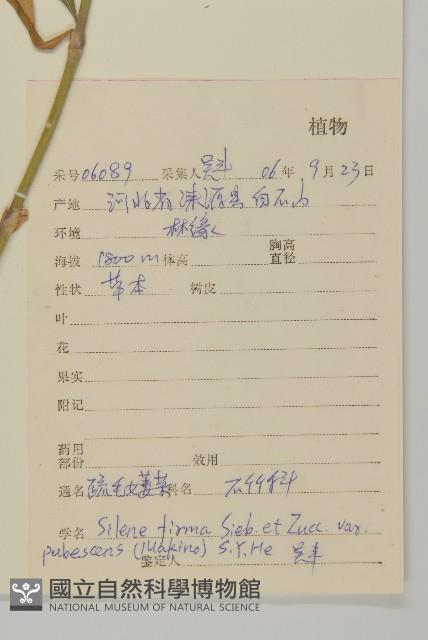 植物
采号 06089 采集人 吴丰 06年 9月23日
产地 河北省涞源县白石山
环境 林缘
海拔 1800m 体高 胸高直径
性状 草本 树皮
叶
花
果实
附记
药用部份 效用
通名 疏毛女娄菜 科名 石竹科
学名 Silene firma Sieb. et Zucc. var.
pubescens (Makino) S.Y.He
鉴定人
國立自然科學博物館
NATIONAL MUSEUM OF NATURAL SCIENCE